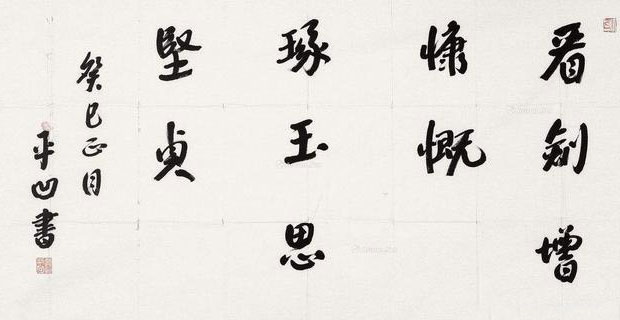 看劍增
慷慨
琢玉思
堅貞
癸巳正月
平凹書